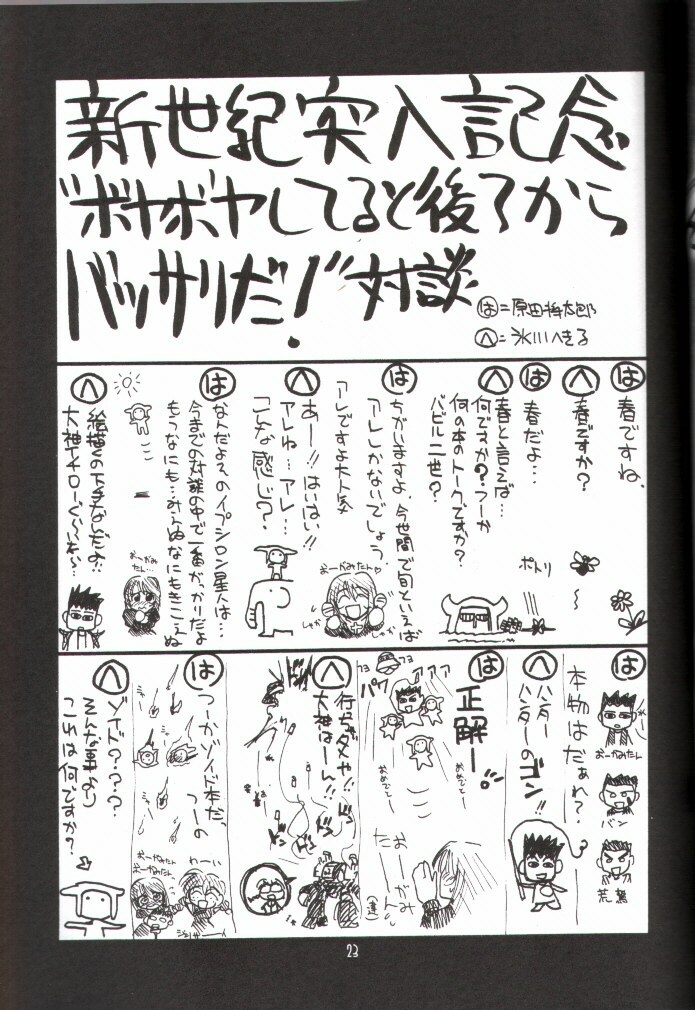 新世紀突入記念
"ボヤボヤしてると後ろから
バッサリだ!"対談
は=原田将太郎
へ=氷川へきる
は
春ですね。
へ
春ですか?
は
春だよ…
へ
春と言えば…
何ですか?つーか
何の本のトークですか?
バビル二世?
ポトリ
は
ちがいますよ。今世間で旬といえば
アレしかないでしょう。
アレですよ大人気
おーがみたん
しゃか
しゃか
へ
あー!!はいはい!!
アレね…アレ…
こんな感じ?
は
なんだよそのイプシロン星人は…
今までの対談の中で一番がっかりだよ
もうなにも…みえぬなにもきこえぬ
おーがみ
たん…
へ
絵描くの下手なんだよ…
大神イチローぐらい
は
本物はだぁれ?
おーがみたん
バン
荒鷲
へ
ハンター
ハンターのゴン!!
は
正解ー。
パァアアア
おめでとー
おめでとー
おーがみ
たーん
へ
行っちゃダメや!!
大神はーん!!
は
つーかゾイド本だっ
つーの
わーい
おーがみたん
おーがみたん
へ
ゾイド????
そんな事より
これは何ですか?
23